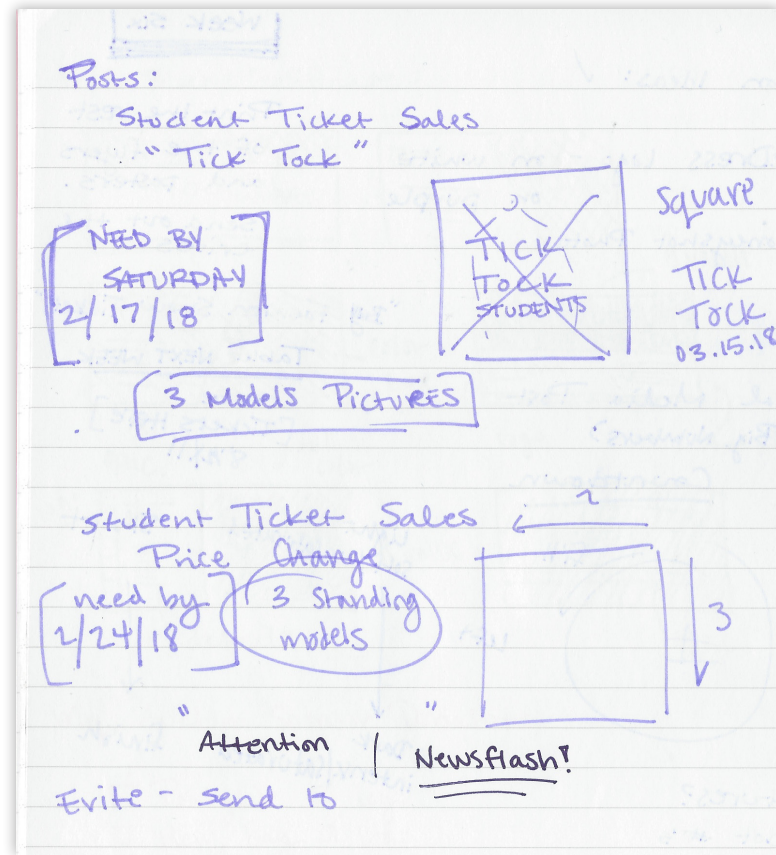 Posts:
Student Ticket Sales
"Tick Tock"
NEED BY
SATURDAY
2/17/18
TICK
TOCK
STUDENTS
Square
TICK
TOCK
03.15.18
3 Models PICTURES
Student Ticket Sales
Price Change
need by
2/24/18
3 Standing
models
2
3
" "
Attention | Newsflash!
Evite - send to